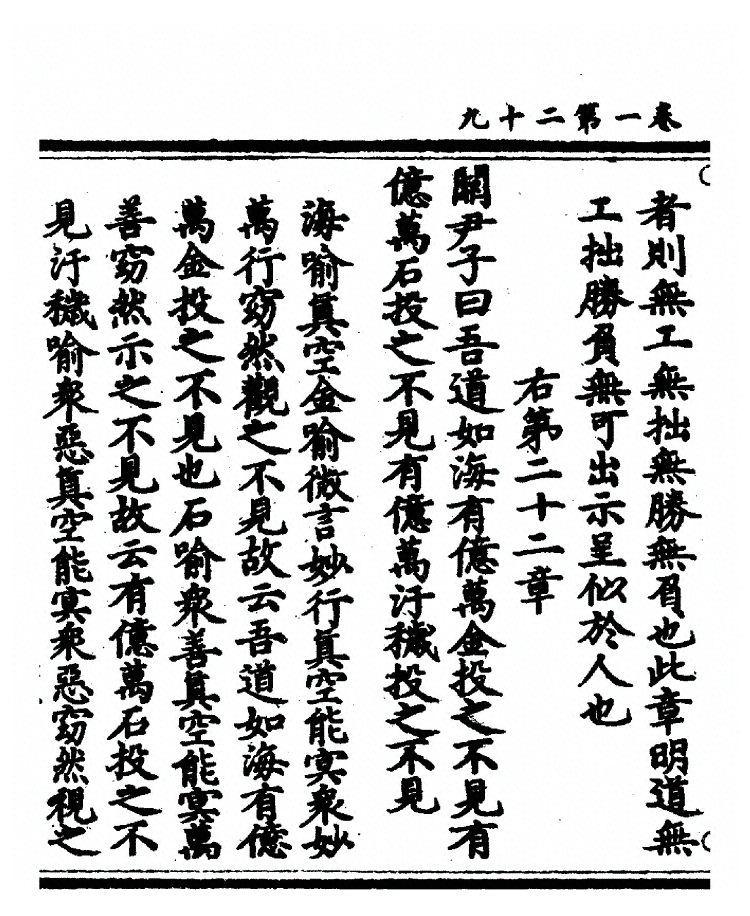 卷一第二十九
者則無工無拙無勝無負也此章明道無
工拙勝負無可出示呈似於人也
右第二十二章
關尹子曰吾道如海有億萬金投之不見有
億萬石投之不見有億萬汙穢投之不見
海喻真空金喻微言妙行真空能冥衆妙
萬行窈然觀之不見故云吾道如海有億
萬金投之不見也石喻衆善真空能冥萬
善窈然示之不見故云有億萬石投之不
見汙穢喻衆惡真空能冥衆惡窈然視之